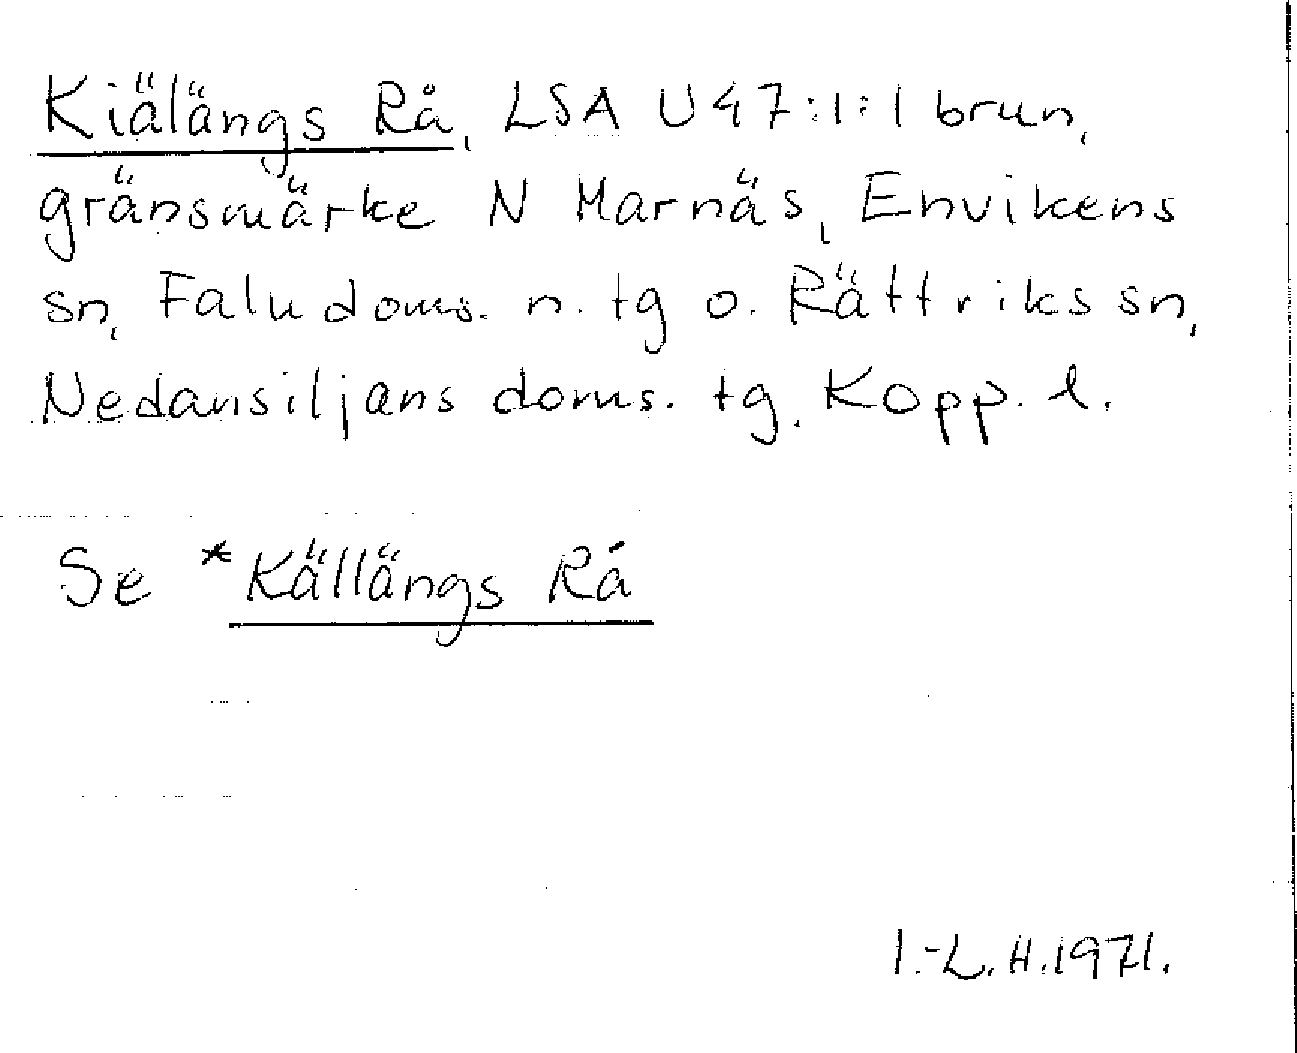 Kiälängs Rå, LSA U47:1:1 brun,
gränsmärke N Marnäs, Envikens
sn, Falu doms. n. tg o. Rättviks sn,
Nedansiljans doms. tg. Kopp. l.
Se *Källängs Rå
I.-L. H. 1971.